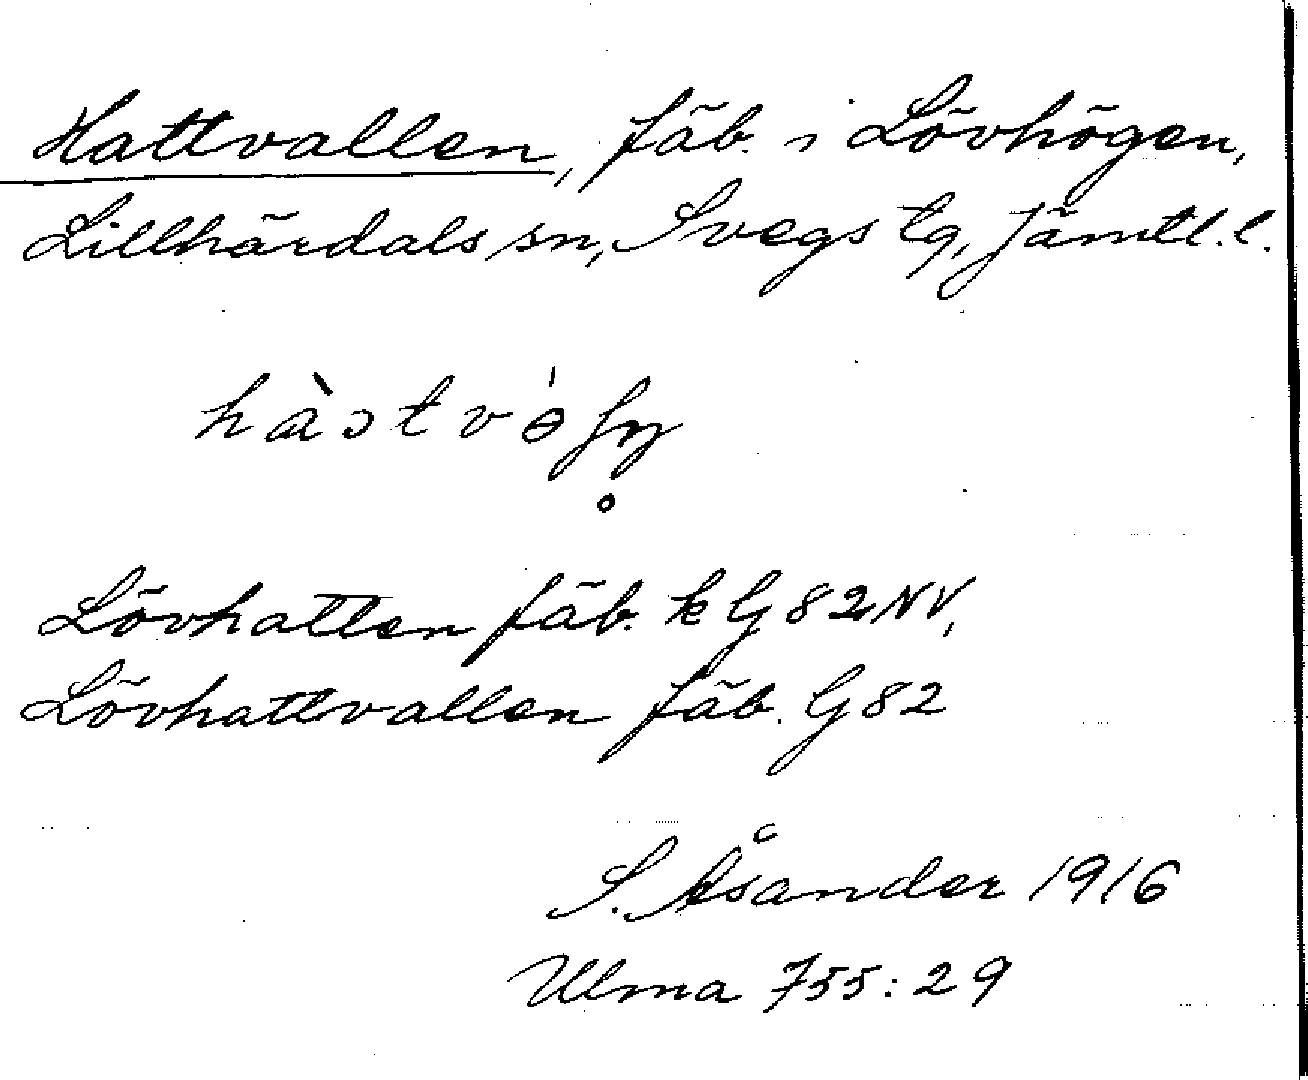 Hattvallen, fäb. i Lövhögen,
Lillhärdals sn, Svegs tg, Jämtl. l.
Lövhatten fäb. k G 82 NV,
Lövhattvallen fäb. G 82
S. Åsander 1916
Ulma 755:29